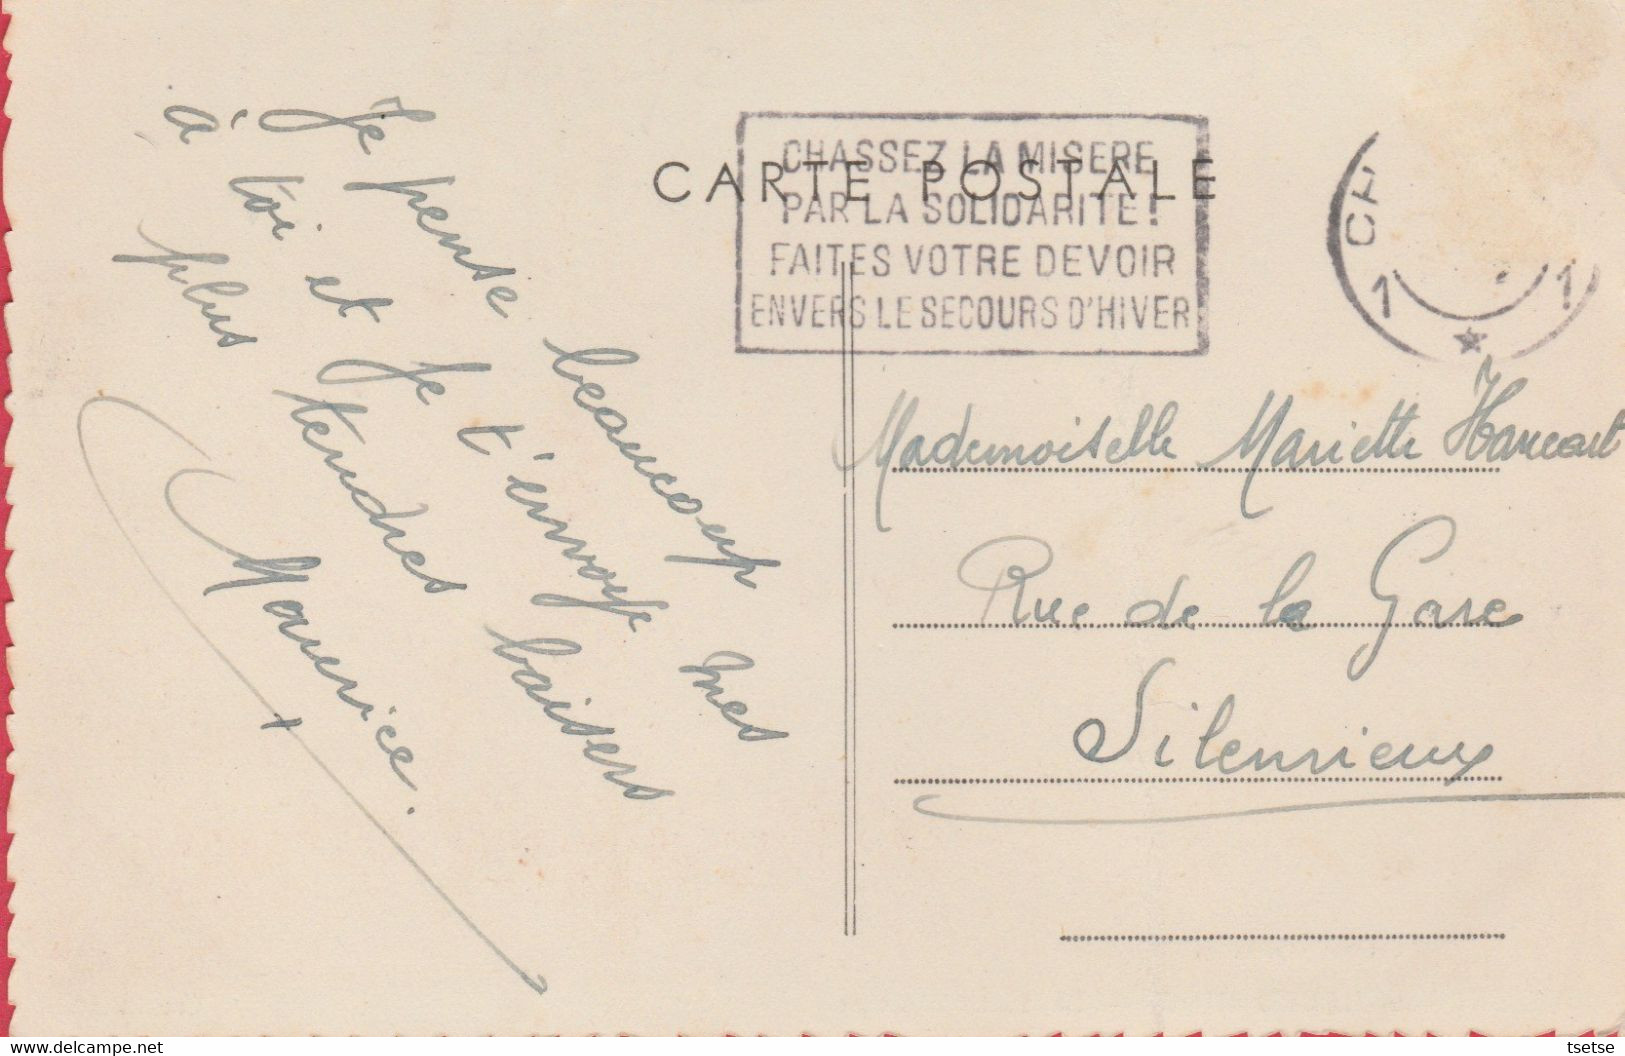 CARTE POSTALE
CHASSEZ LA MISERE
PAR LA SOLIDARITE!
FAITES VOTRE DEVOIR
ENVERS LE SECOURS D'HIVER
CH
1 1
Je pense beaucoup
à toi et je t'envoye mes
plus tendres baisers
Maurice.
Mademoiselle Mariette
Rue de la Gare
Silenrieux
tsetse
delcampe.net